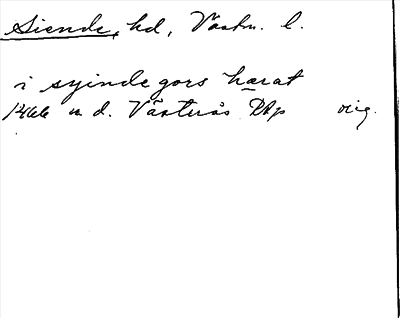 Siende, hd, Västm. l.
i syinde gors hærat
1466 u. d. Västerås DAp orig.